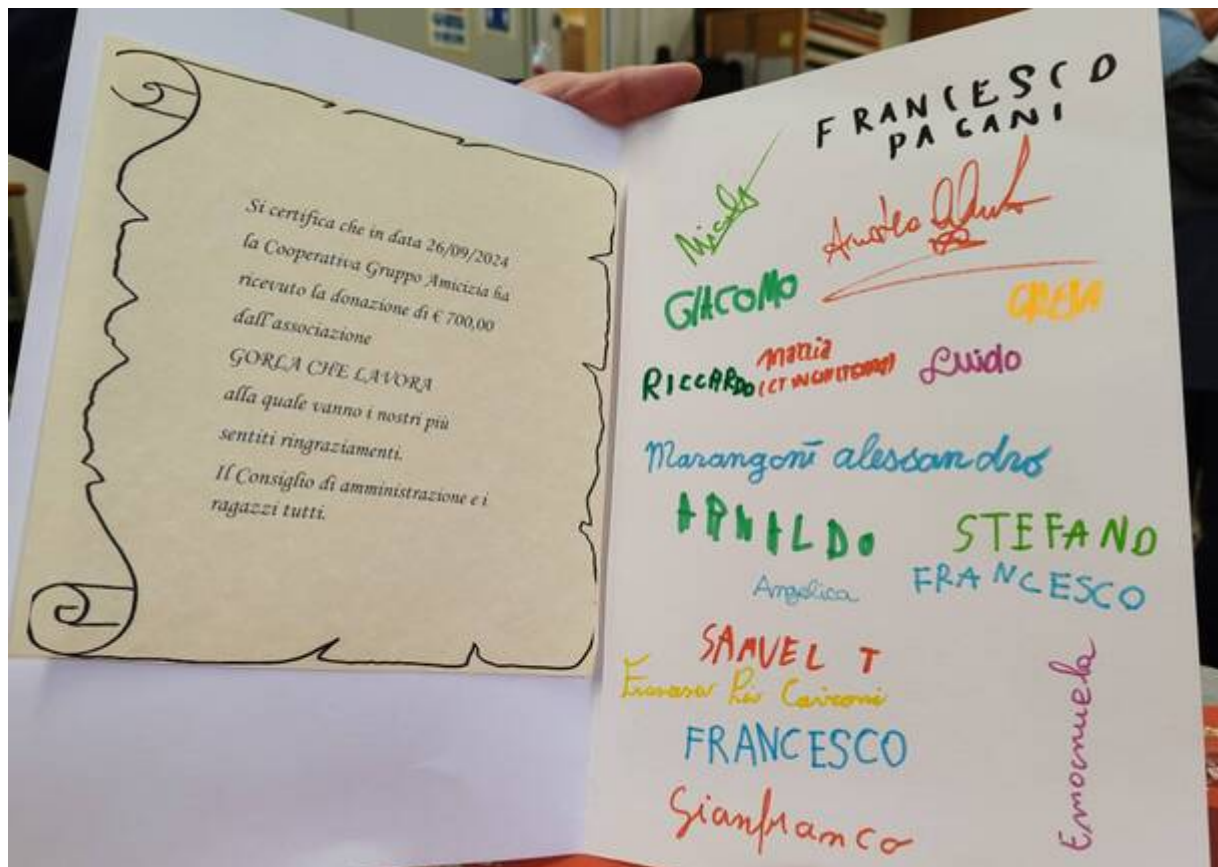 Si certifica che in data 26/09/2024
la Cooperativa Gruppo Amicizia ha
ricevuto la donazione di € 700,00
dall'associazione
GORLA CHE LAVORA
alla quale vanno i nostri più
sentiti ringraziamenti.
Il Consiglio di amministrazione e i
ragazzi tutti.
FRANCESCO
PAGANI
GIACOMO
RICCARDO
Mattia
Guido
Marangoni alessandro
ARNALDO
STEFANO
Angelica
FRANCESCO
SAMUEL T
Pio Caironi
FRANCESCO
Gianfranco
Emanuela